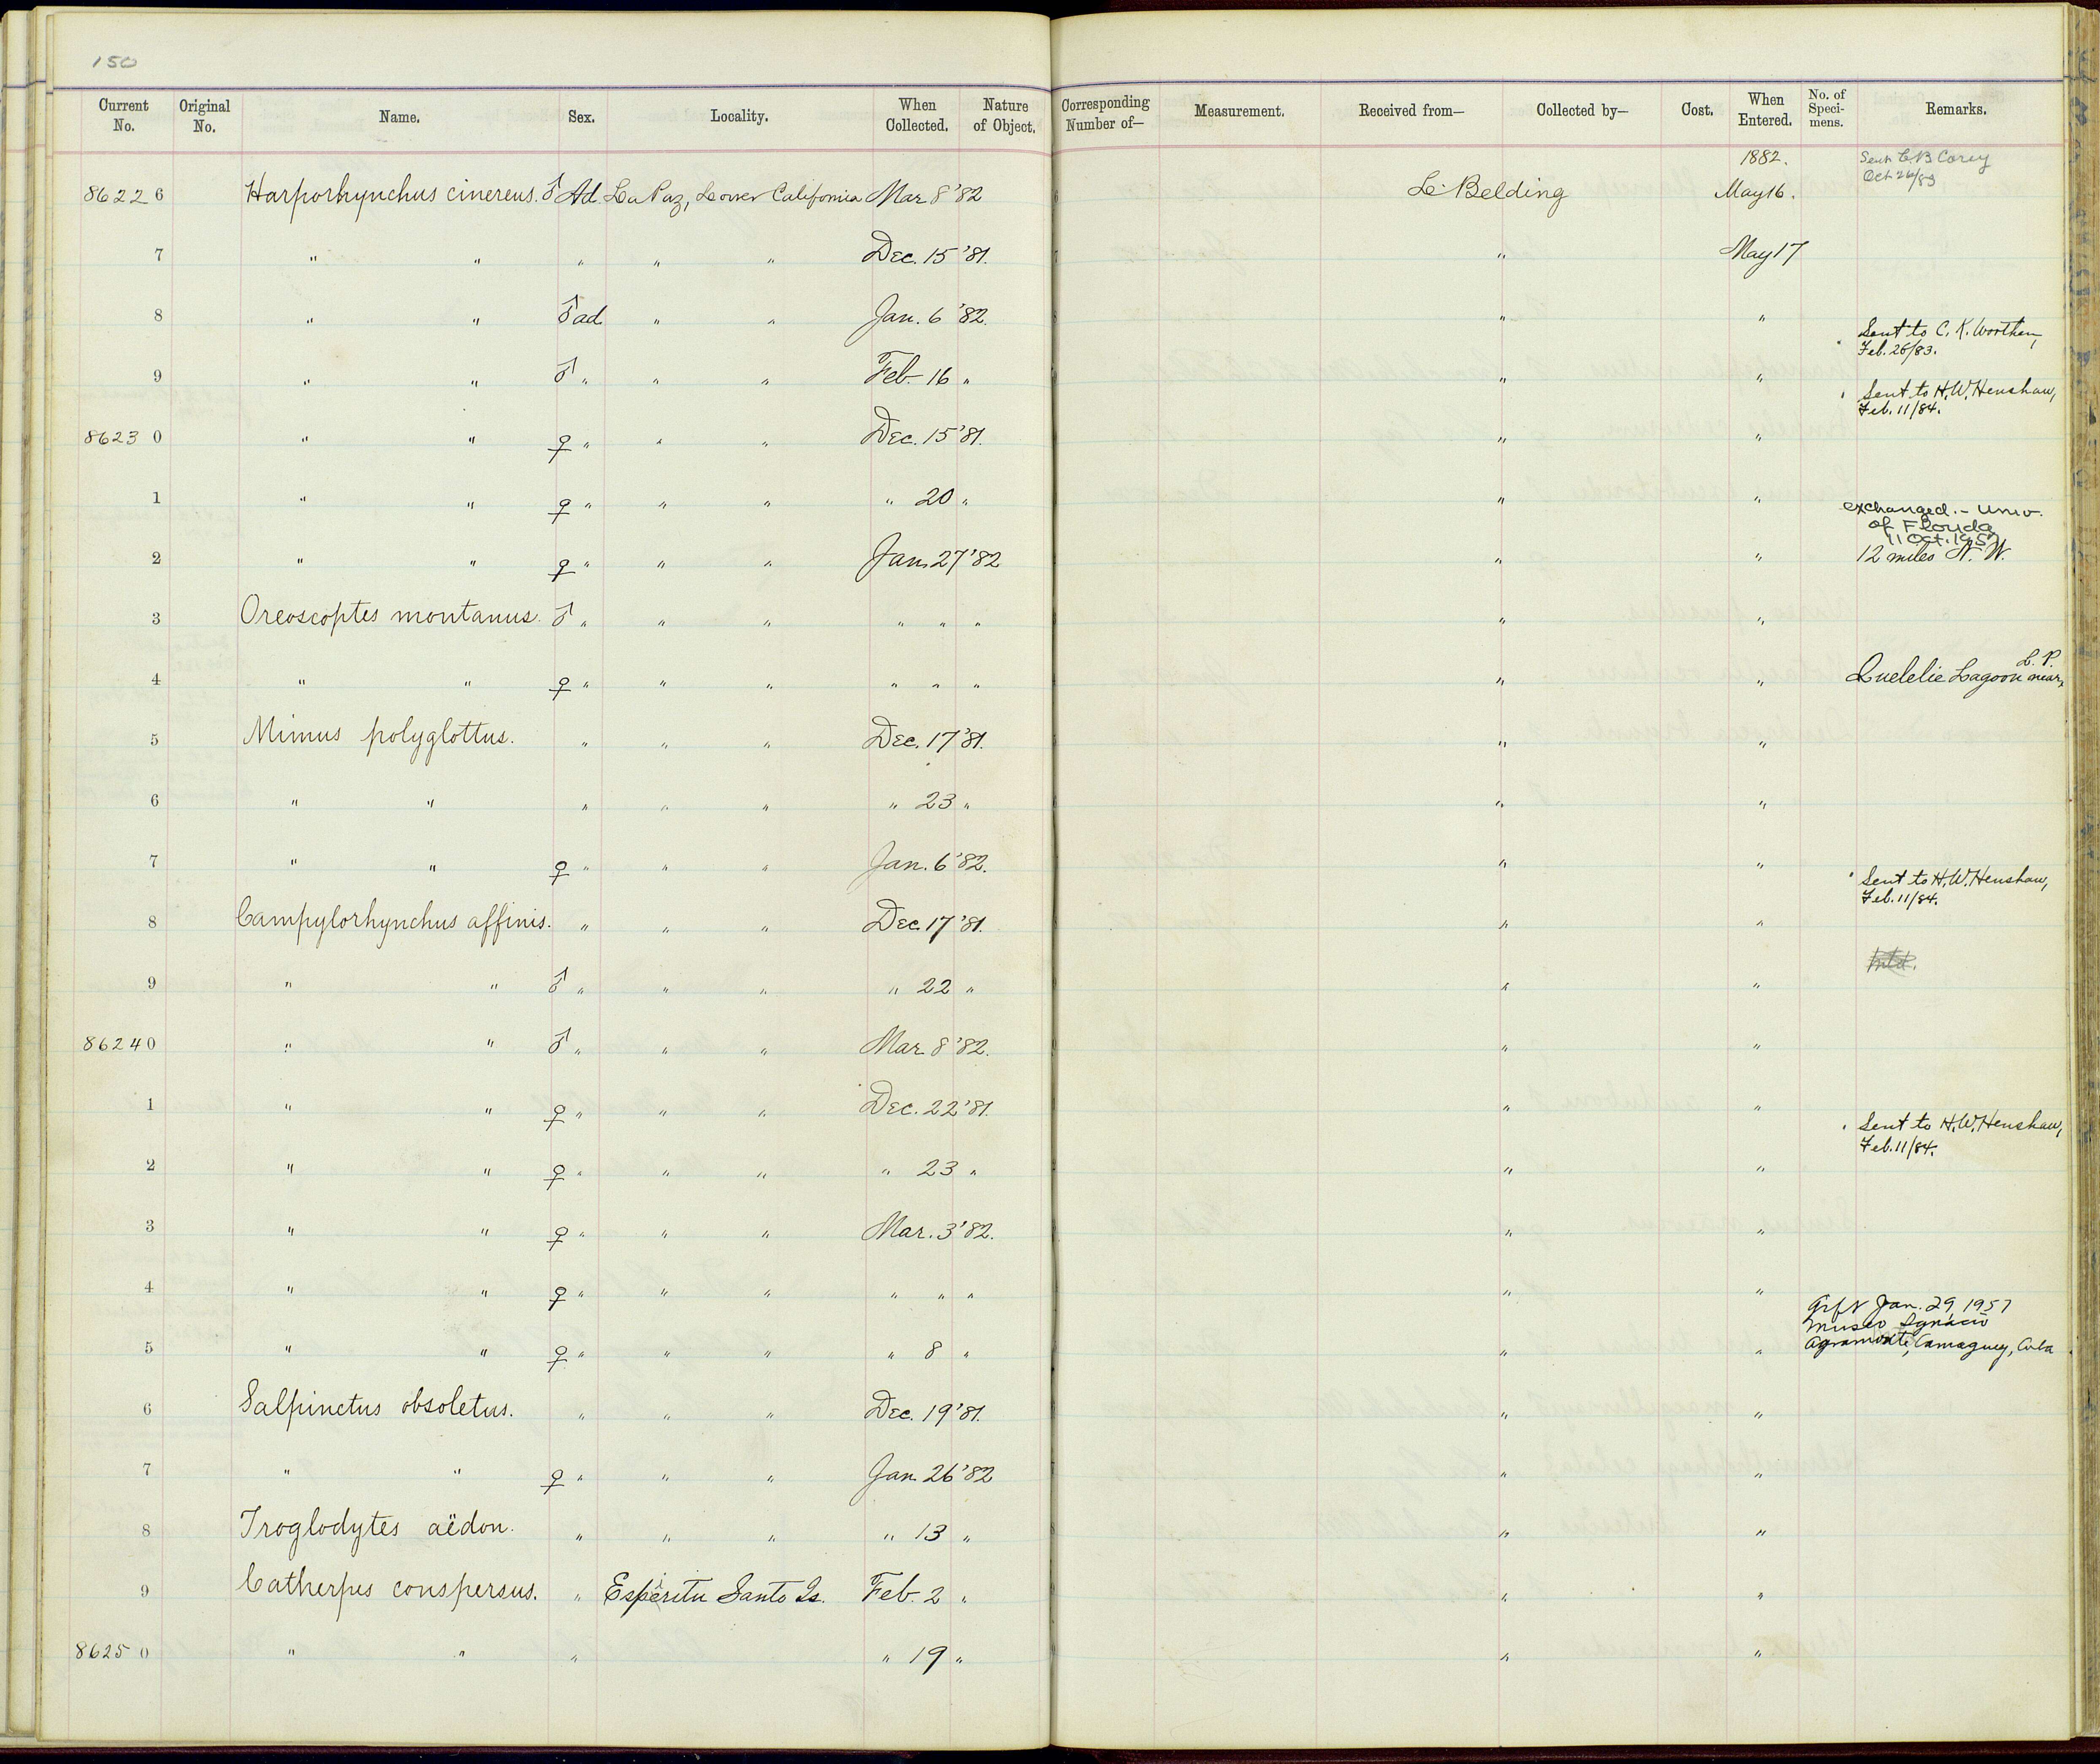 150
Current No. Original No. Name. Sex. Locality. When Collected. Nature of Object. Corresponding Number of— Measurement. Received from— Collected by— Cost. When Entered. No. of Specimens. Remarks.
1882. Sent C B Corey
Oct 26/83
86226 Harporhynchus cinereus. ♂ Ad La Paz, Lower California Mar 8 '82 L. Belding May 16.
7 " " " " " Dec. 15 '81. " May 17
8 " " ♂ ad " " Jan. 6 '82. " " Sent to C. K. Worthen,
Feb. 26/83.
9 " " ♂ " " " Feb. 16 " " " Sent to H. W. Henshaw,
Feb. 11/84.
86230 " " ♀ " " " Dec. 15 '81. " "
1 " " ♀ " " " " 20 " " " exchanged. - Univ.
of Florida
11 Oct. 1957
2 " " ♀ " " " Jan. 27 '82 " " 12 miles N. W.
3 Oreoscoptes montanus. ♂ " " " " " " " "
4 " " ♀ " " " " " " " " Quelelie Lagoon near L. P.
5 Mimus polyglottus. " " " Dec. 17 '81. " "
6 " " " " " " 23 " " "
7 " " ♀ " " " Jan. 6 '82. " " Sent to H. W. Henshaw,
Feb. 11/84.
8 Campylorhynchus affinis. " " " Dec. 17 '81. " "
9 " " ♂ " " " " 22 " " "
86240 " " ♂ " " " Mar. 8 '82. " "
1 " " ♀ " " " Dec. 22 '81. " " Sent to H. W. Henshaw,
Feb. 11/84.
2 " " ♀ " " " " 23 " " "
3 " " ♀ " " " Mar. 3 '82. " "
4 " " ♀ " " " " " " " "
Gift Jan. 29, 1957
Museo Ignacio
5 " " ♀ " " " " 8 " " " Agramonte, Camaguey, Cuba
6 Salpinctus obsoletus. " " " Dec. 19 '81. " "
7 " " ♀ " " " Jan. 26 '82 " "
8 Troglodytes aëdon. " " " " 13 " " "
9 Catherpes conspersus. " Espiritu Santo Is. Feb. 2 " " "
86250 " " " " 19 " " "